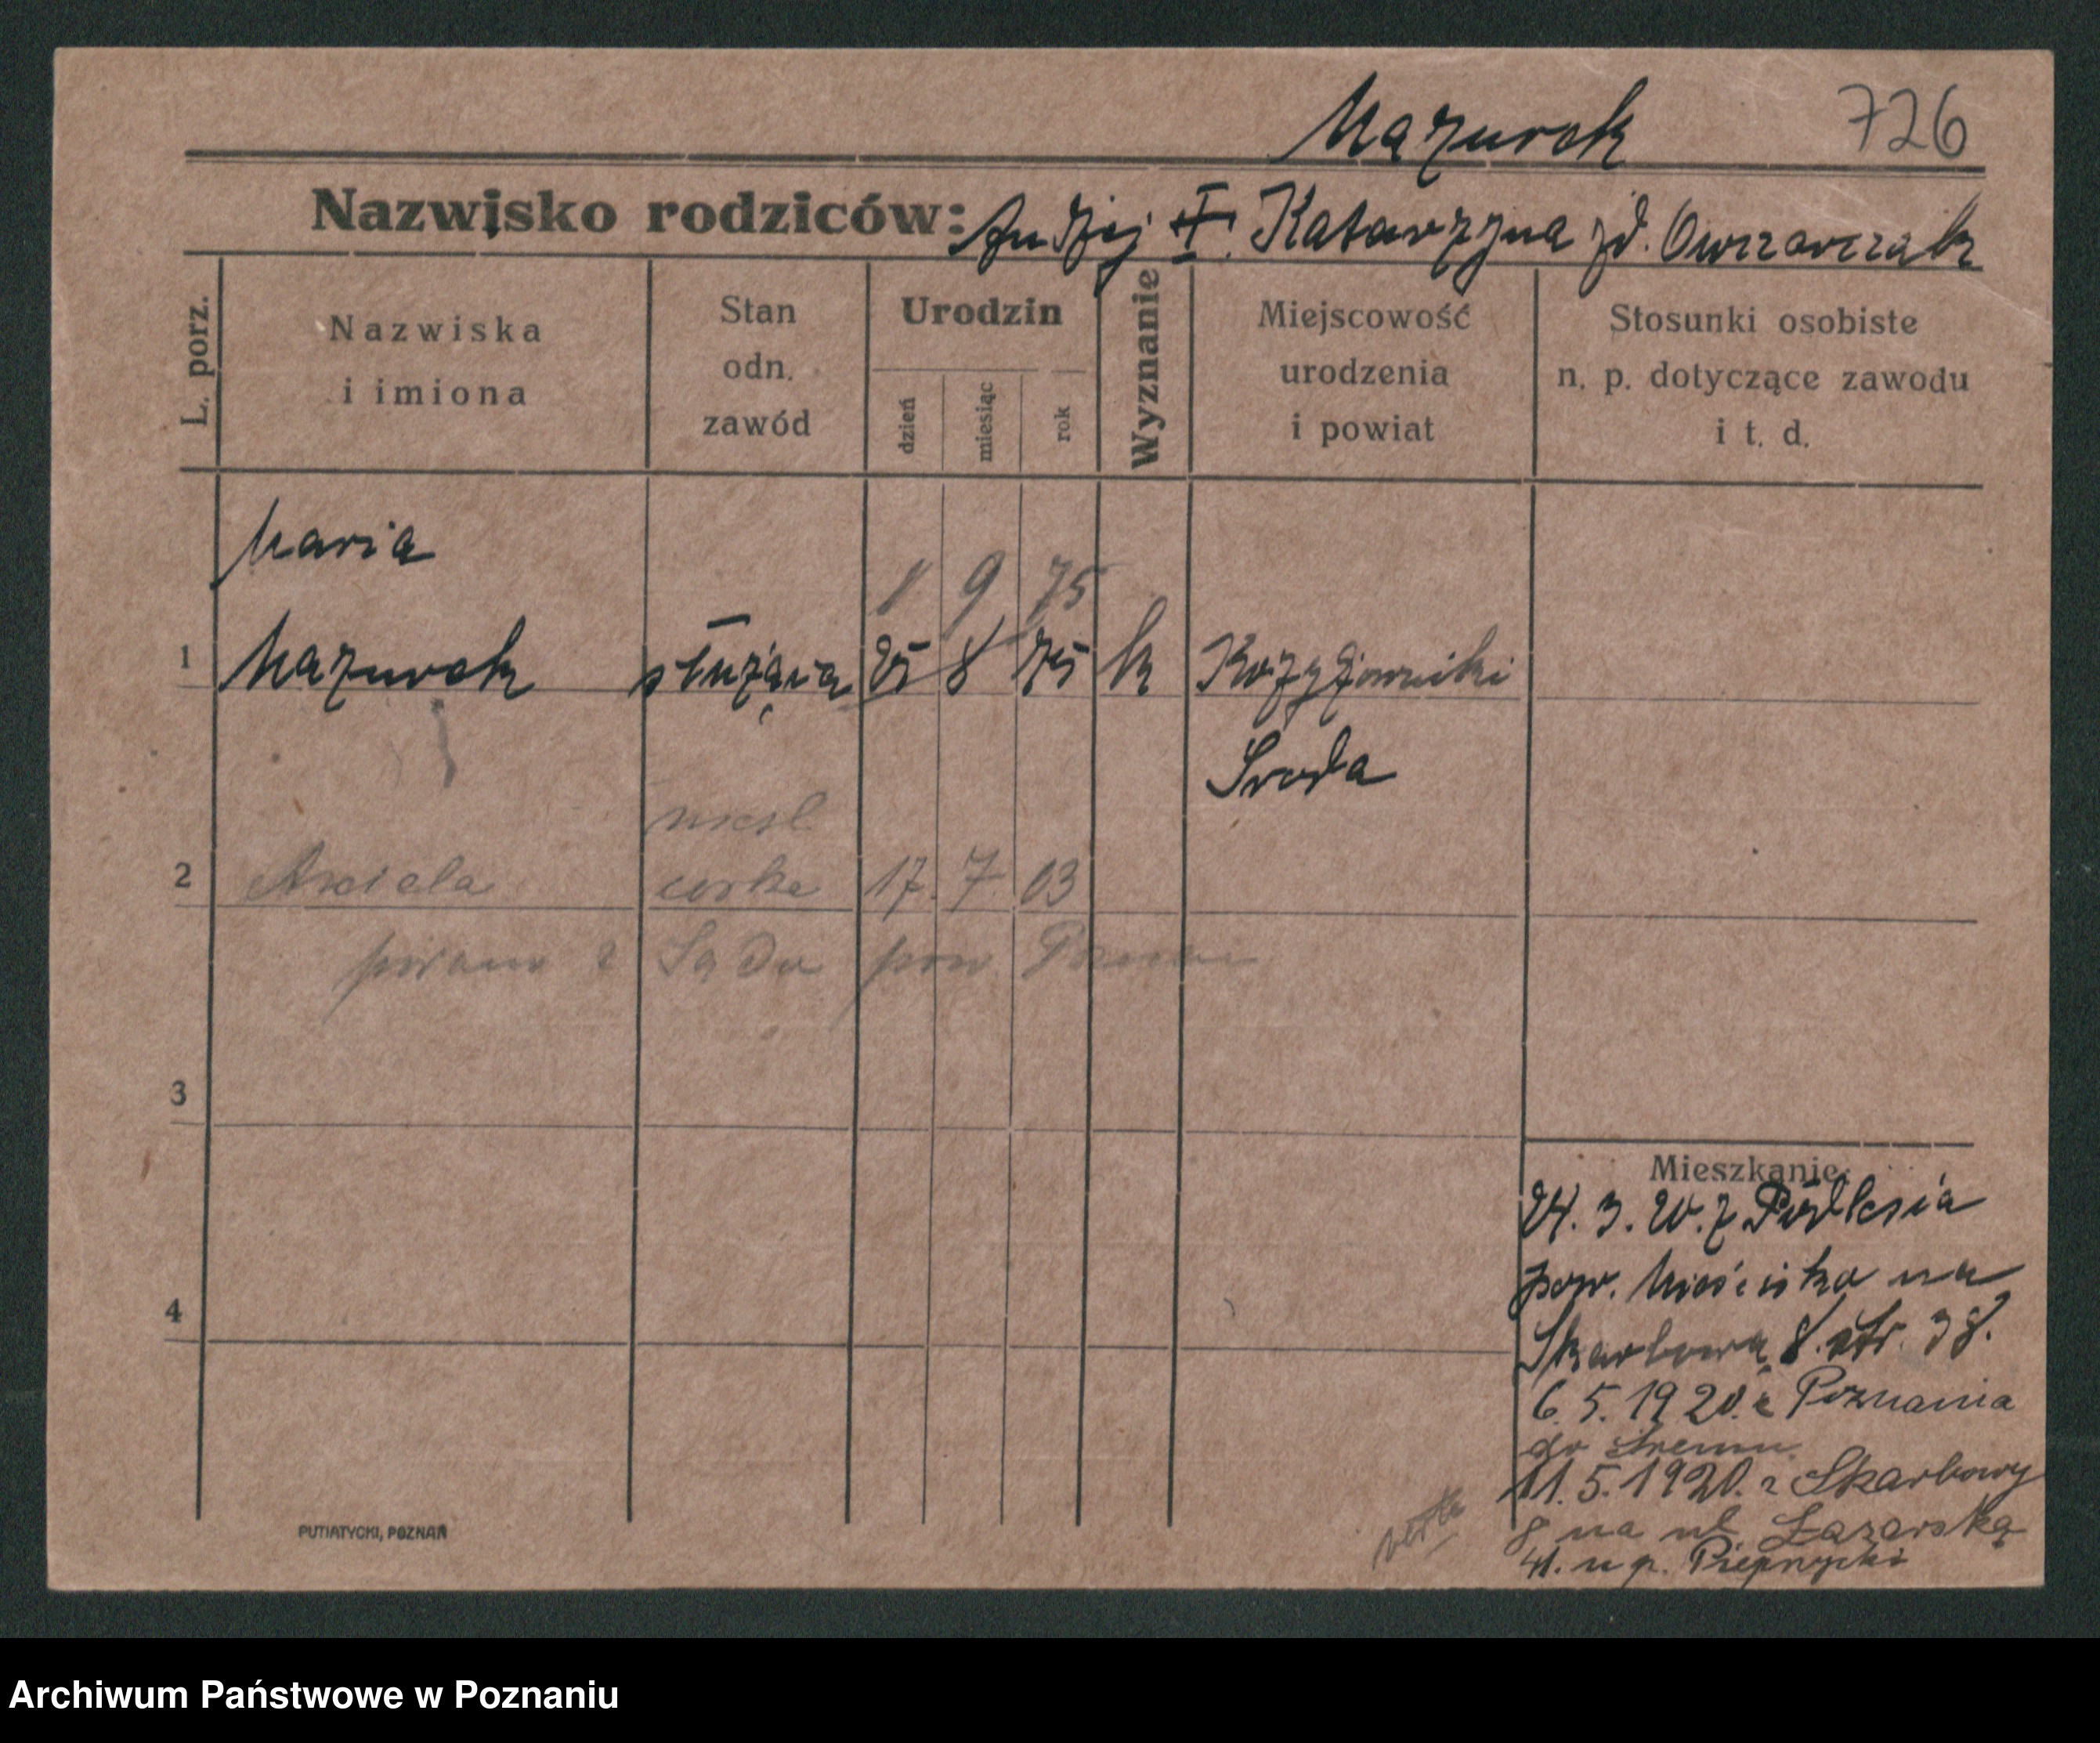 Mazurek 726
Nazwisko rodziców: Andrzej I. Katarzyna zd. Owczarczak
L. porz.
Nazwiska
i imiona
Stan
odn.
zawód
Urodzin
dzień
miesiąc
rok
Wyznanie
Miejscowość
urodzenia
i powiat
Stosunki osobiste
n. p. dotyczące zawodu
i t. d.
Maria
1 9 75
1 Mazurek służąca 25 8 75 k
Sroda
2 córka 17. 7 03
pow
3
4
Mieszkanie:
24. 3. 20. z Podlesia
pow. Mieściska na
Skarbową 8. ptr. 38.
6. 5. 1920. z Poznania
do Śremu
11. 5. 1920. z Skarbowy
8 na ul Łazarską
41. u p.
verte
PUTIATYCKI, POZNAŃ
Archiwum Państwowe w Poznaniu